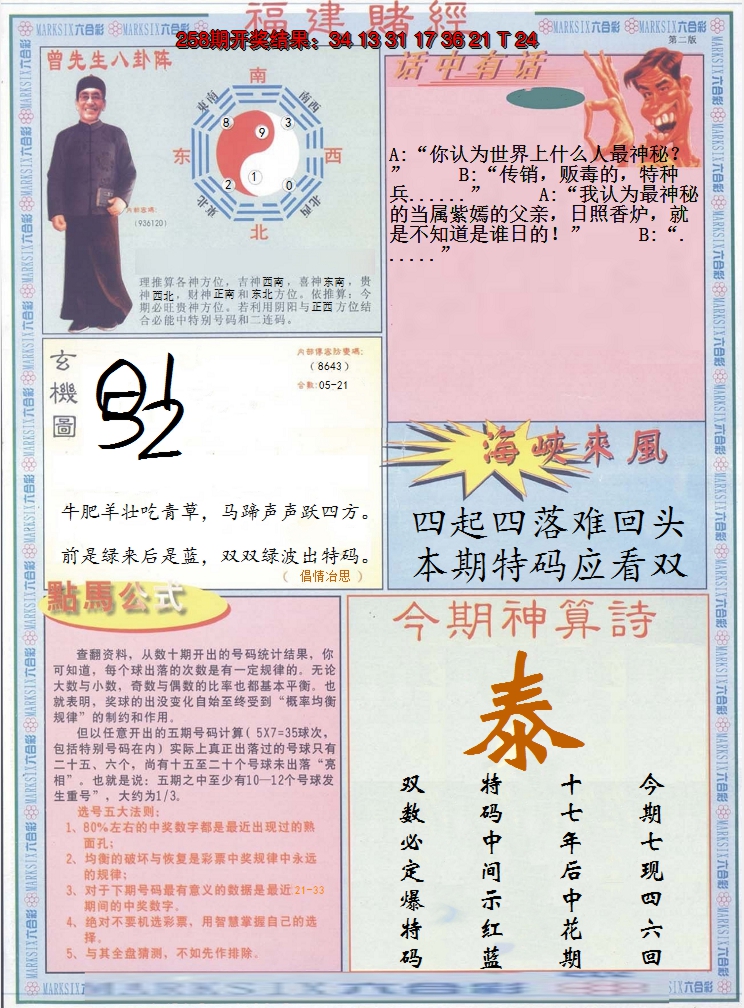 福建賭經
258期开奖结果：34 13 31 17 36 21 T 24
第二版
曾先生八卦阵
南
东南
南西
8
3
9
东
西
2
1
0
东北
北西
北
內部密碼：
（936120）
理推算各神方位，吉神西南，喜神东南，贵
神西北，财神正南和东北方位。依推算：今
期必旺贵神方位。若利用阴阳与正西方位结
合必能中特别号码和二连码。
话中有话
A:“你认为世界上什么人最神秘？
”　　B:“传销，贩毒的，特种
兵......”　　A:“我认为最神秘
的当属紫嫣的父亲，日照香炉，就
是不知道是谁日的！”　　B:“.
.....”
玄機圖
（8643）
合數:05-21
牛肥羊壮吃青草，马蹄声声跃四方。
前是绿来后是蓝，双双绿波出特码。
（ 倡情冶思 ）
海峽來風
四起四落难回头
本期特码应看双
點馬公式
查翻资料，从数十期开出的号码统计结果，你
可知道，每个球出落的次数是有一定规律的。无论
大数与小数，奇数与偶数的比率也都基本平衡。也
就表明，奖球的出没变化自始至终受到“概率均衡
规律”的制约和作用。
但以任意开出的五期号码计算( 5X7=35球次，
包括特别号码在内) 实际上真正出落过的号球只有
二十五、六个，尚有十五至二十个号球未出落“亮
相”。也就是说：五期之中至少有10—12个号球发
生重号”，大约为1/3。
选号五大法则：
1、80%左右的中奖数字都是最近出现过的熟
面孔；
2、均衡的破坏与恢复是彩票中奖规律中永远
的规律；
3、对于下期号码最有意义的数据是最近21-33
期间的中奖数字。
4、绝对不要机选彩票，用智慧掌握自己的选
择。
5、与其全盘猜测，不如先作排除。
今期神算詩
泰
今期七现四六回
十七年后中花期
特码中间示红蓝
双数必定爆特码
MARKSIX六合彩